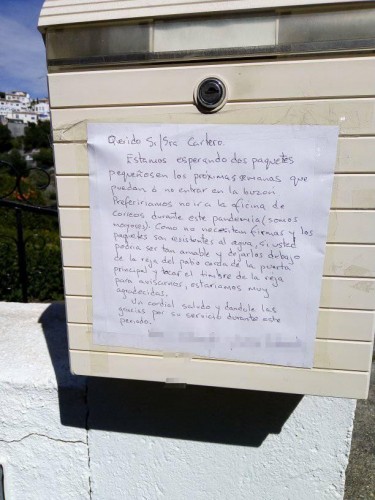 Querido Sr/Sra Cartero.
Estamos esperando dos paquetes
pequeños en los próximas semanas que
puedan ó no entrar en la buzon
Prefeririamos no ir a la oficina de
correos durante este pandemia (somos
mayores). Como no necesitan firmas y los
paquetes son resistentes al agua, si usted
podria ser tan amable y dejarlos debajo
de la reja del patio cerca de la puerta
principal y tocar el timbre de la reja
para avisarnos, estariamos muy
agradecidas.
Un cordial saludo y dandole las
gracias por su servicio durante este
periodo.